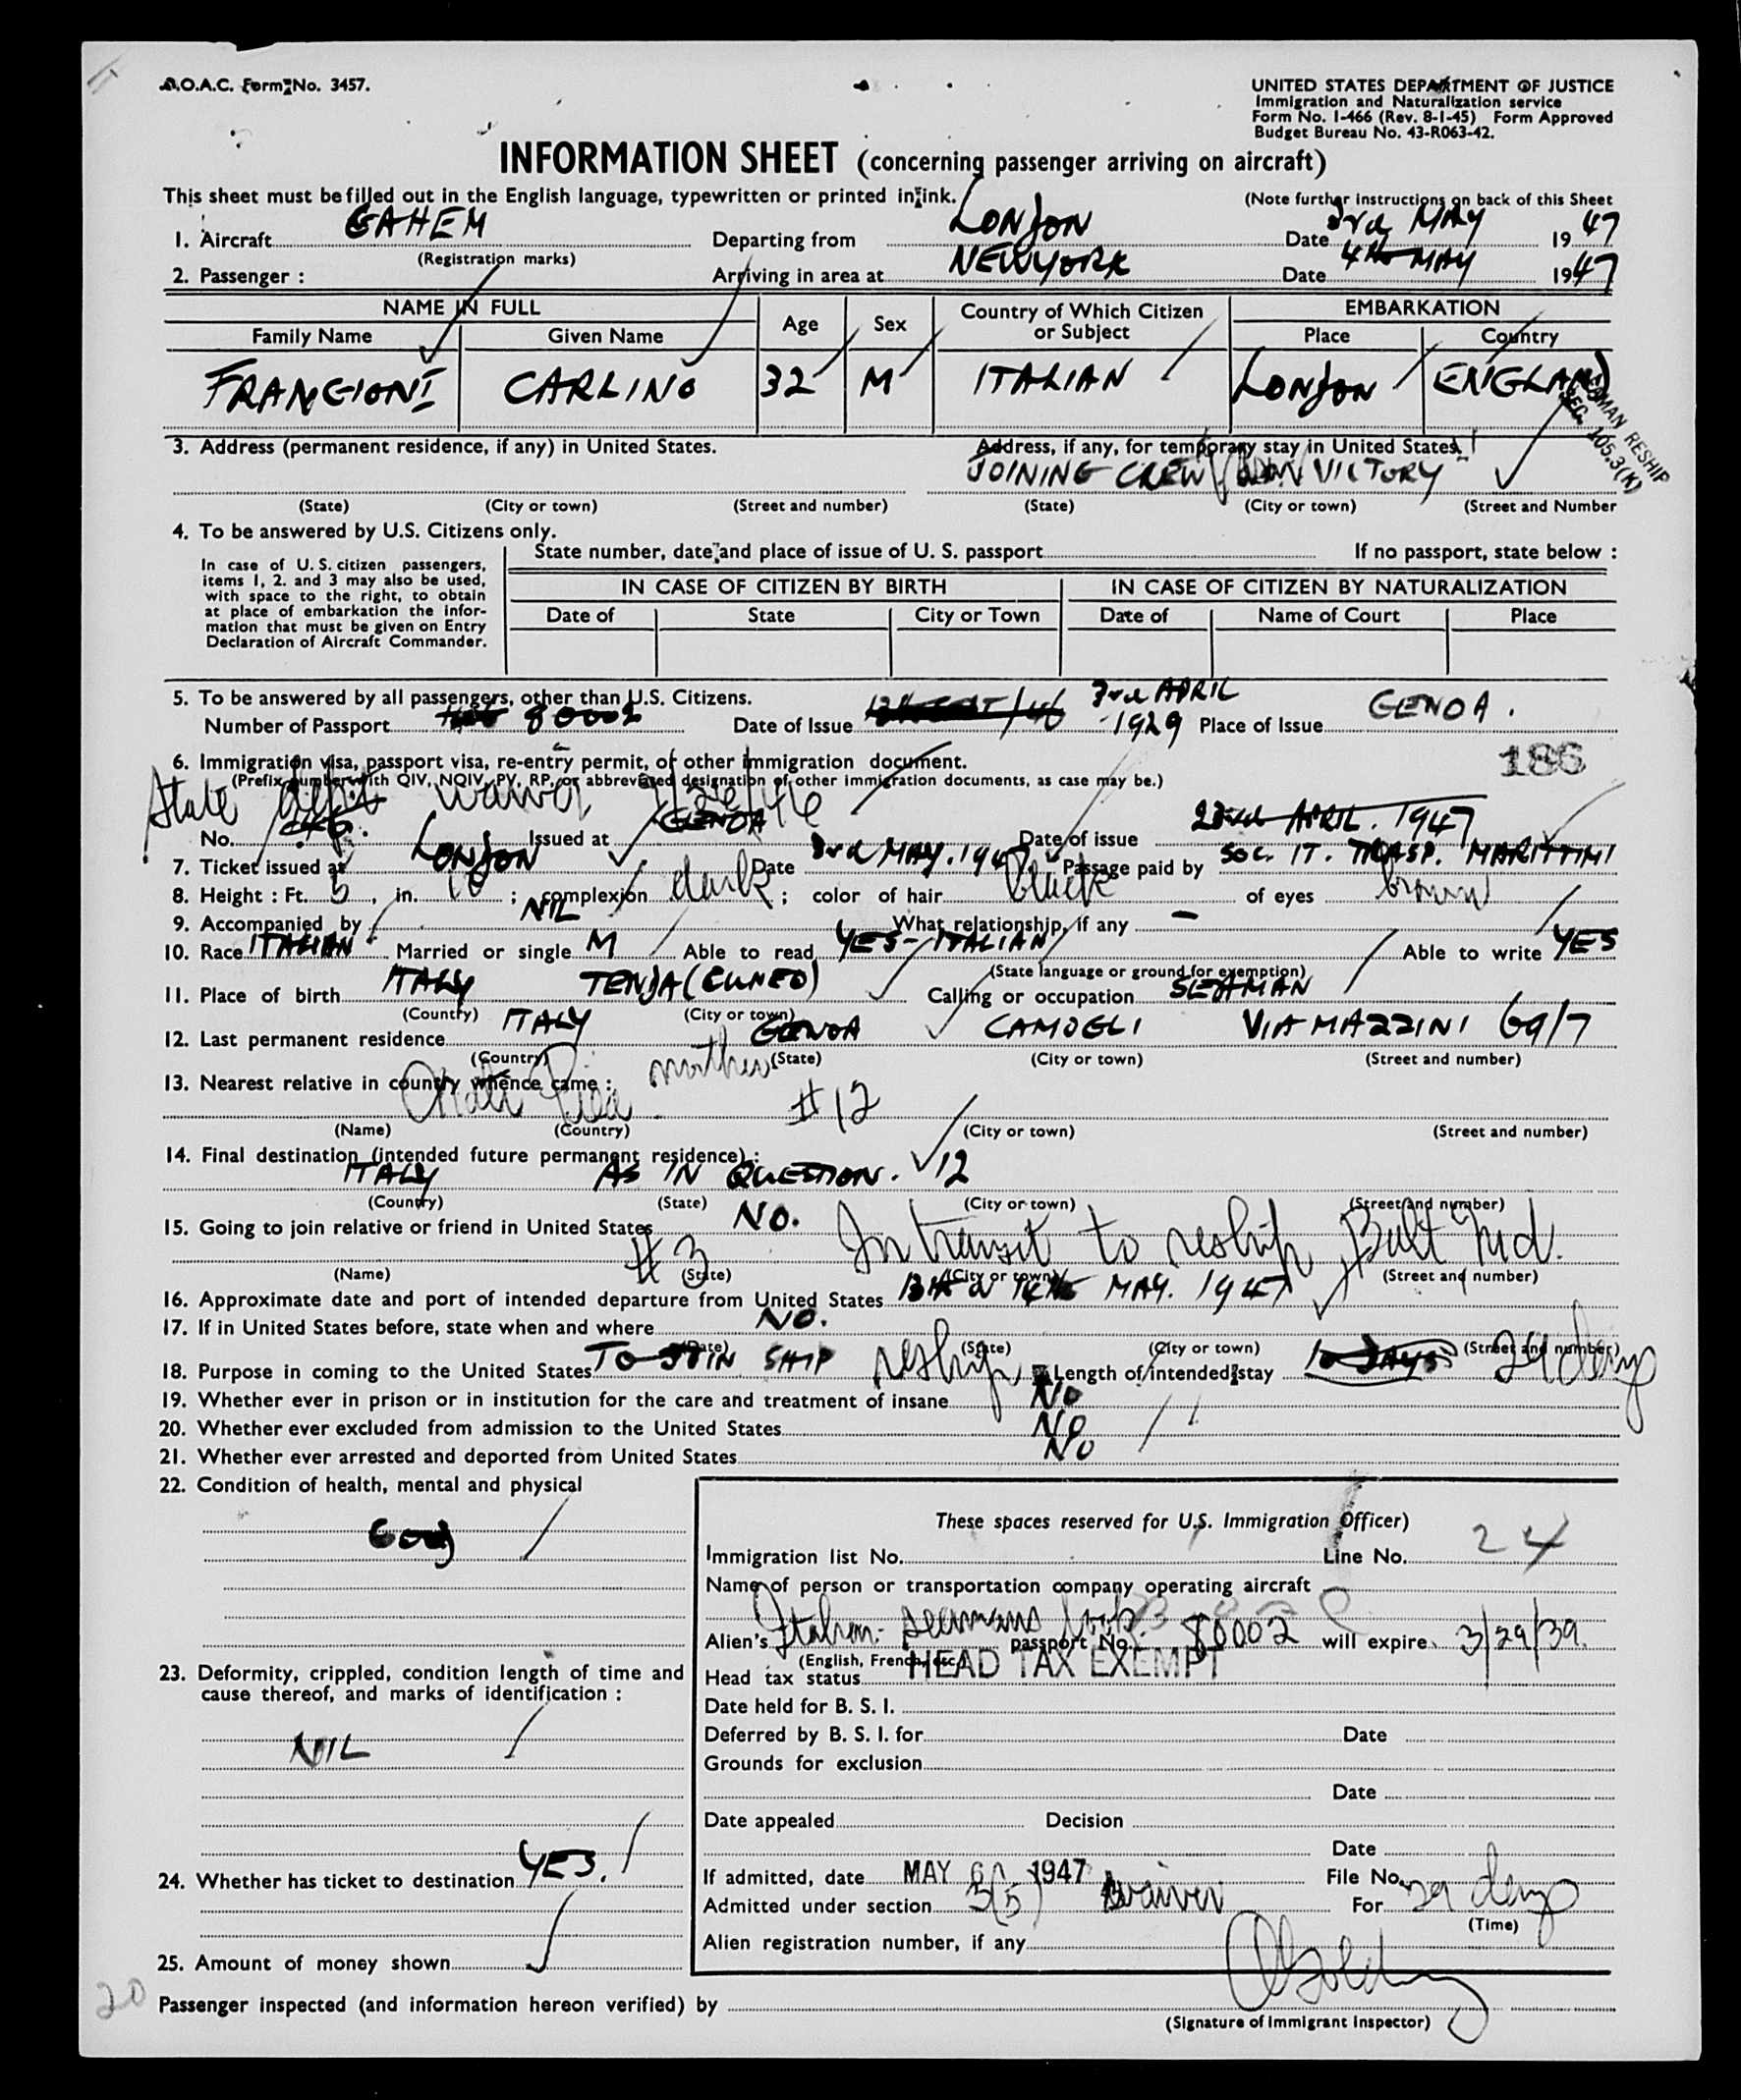 B.O.A.C. Form No. 3457.
UNITED STATES DEPARTMENT OF JUSTICE
Immigration and Naturalization service
Form No. I-466 (Rev. 8-1-45) Form Approved
Budget Bureau No. 43-R063-42.
INFORMATION SHEET (concerning passenger arriving on aircraft)
This sheet must be filled out in the English language, typewritten or printed in ink. (Note further instructions on back of this Sheet
1. Aircraft GAHEM Departing from LONDON Date 3rd MAY 1947
(Registration marks)
2. Passenger : Arriving in area at NEW YORK Date 4th MAY 1947
NAME IN FULL Age Sex Country of Which Citizen or Subject EMBARKATION
Family Name Given Name Place Country
FRANGIONI CARLINO 32 M ITALIAN LONDON ENGLAND
SEAMAN RESHIP
SEC. 105.3(K)
3. Address (permanent residence, if any) in United States. Address, if any, for temporary stay in United States.
JOINING CREW VICTORY
(State) (City or town) (Street and number) (State) (City or town) (Street and Number
4. To be answered by U.S. Citizens only.
In case of U.S. citizen passengers, items 1, 2. and 3 may also be used, with space to the right, to obtain at place of embarkation the information that must be given on Entry Declaration of Aircraft Commander.
State number, date and place of issue of U. S. passport If no passport, state below :
IN CASE OF CITIZEN BY BIRTH IN CASE OF CITIZEN BY NATURALIZATION
Date of State City or Town Date of Name of Court Place
5. To be answered by all passengers, other than U.S. Citizens.
Number of Passport 80002 Date of Issue 3rd APRIL 1929 Place of Issue GENOA.
186
6. Immigration visa, passport visa, re-entry permit, or other immigration document.
(Prefix number with QIV, NQIV, PV, RP, or abbreviated designation of other immigration documents, as case may be.)
State dept waiver
No. Issued at GENOA Date of issue 23rd APRIL. 1947
7. Ticket issued at LONDON Date 3rd MAY. 1947 Passage paid by SOC. IT. TRASP. MARITTIMI
8. Height : Ft. 5, in. 10 ; complexion dark ; color of hair black of eyes brown
9. Accompanied by NIL What relationship, if any -
10. Race ITALIAN Married or single M Able to read YES - ITALIAN Able to write YES
(State language or ground for exemption)
11. Place of birth ITALY TENDA (CUNEO) Calling or occupation SEAMAN
(Country) (City or town)
12. Last permanent residence ITALY GENOA CAMOGLI VIA MAZZINI 69/7
(Country) (State) (City or town) (Street and number)
13. Nearest relative in country whence came : mother
Pia #12
(Name) (Country) (City or town) (Street and number)
14. Final destination (intended future permanent residence) :
ITALY AS IN QUESTION. 12
(Country) (State) (City or town) (Street and number)
15. Going to join relative or friend in United States NO.
#3 In transit to reship Balt Md.
(Name) (State) (City or town) (Street and number)
16. Approximate date and port of intended departure from United States 13th MAY. 1947
17. If in United States before, state when and where NO.
(Date) (State) (City or town) (Street and number)
18. Purpose in coming to the United States TO JOIN SHIP reship Length of intended stay 10 DAYS 29 days
19. Whether ever in prison or in institution for the care and treatment of insane NO
20. Whether ever excluded from admission to the United States NO
21. Whether ever arrested and deported from United States NO
22. Condition of health, mental and physical
Good
These spaces reserved for U.S. Immigration Officer)
Immigration list No. Line No. 24
Name of person or transportation company operating aircraft
Alien's Italian seamans passport No. 80002 will expire 3/29/39.
(English, French, etc.)
Head tax status HEAD TAX EXEMPT
23. Deformity, crippled, condition length of time and cause thereof, and marks of identification :
NIL
Date held for B. S. I.
Deferred by B. S. I. for Date
Grounds for exclusion
Date
Date appealed Decision
Date
24. Whether has ticket to destination YES.
If admitted, date MAY 1947 File No.
Admitted under section 3(5) waiver For 29 days
(Time)
Alien registration number, if any
25. Amount of money shown
20
Passenger inspected (and information hereon verified) by
(Signature of Immigrant Inspector)